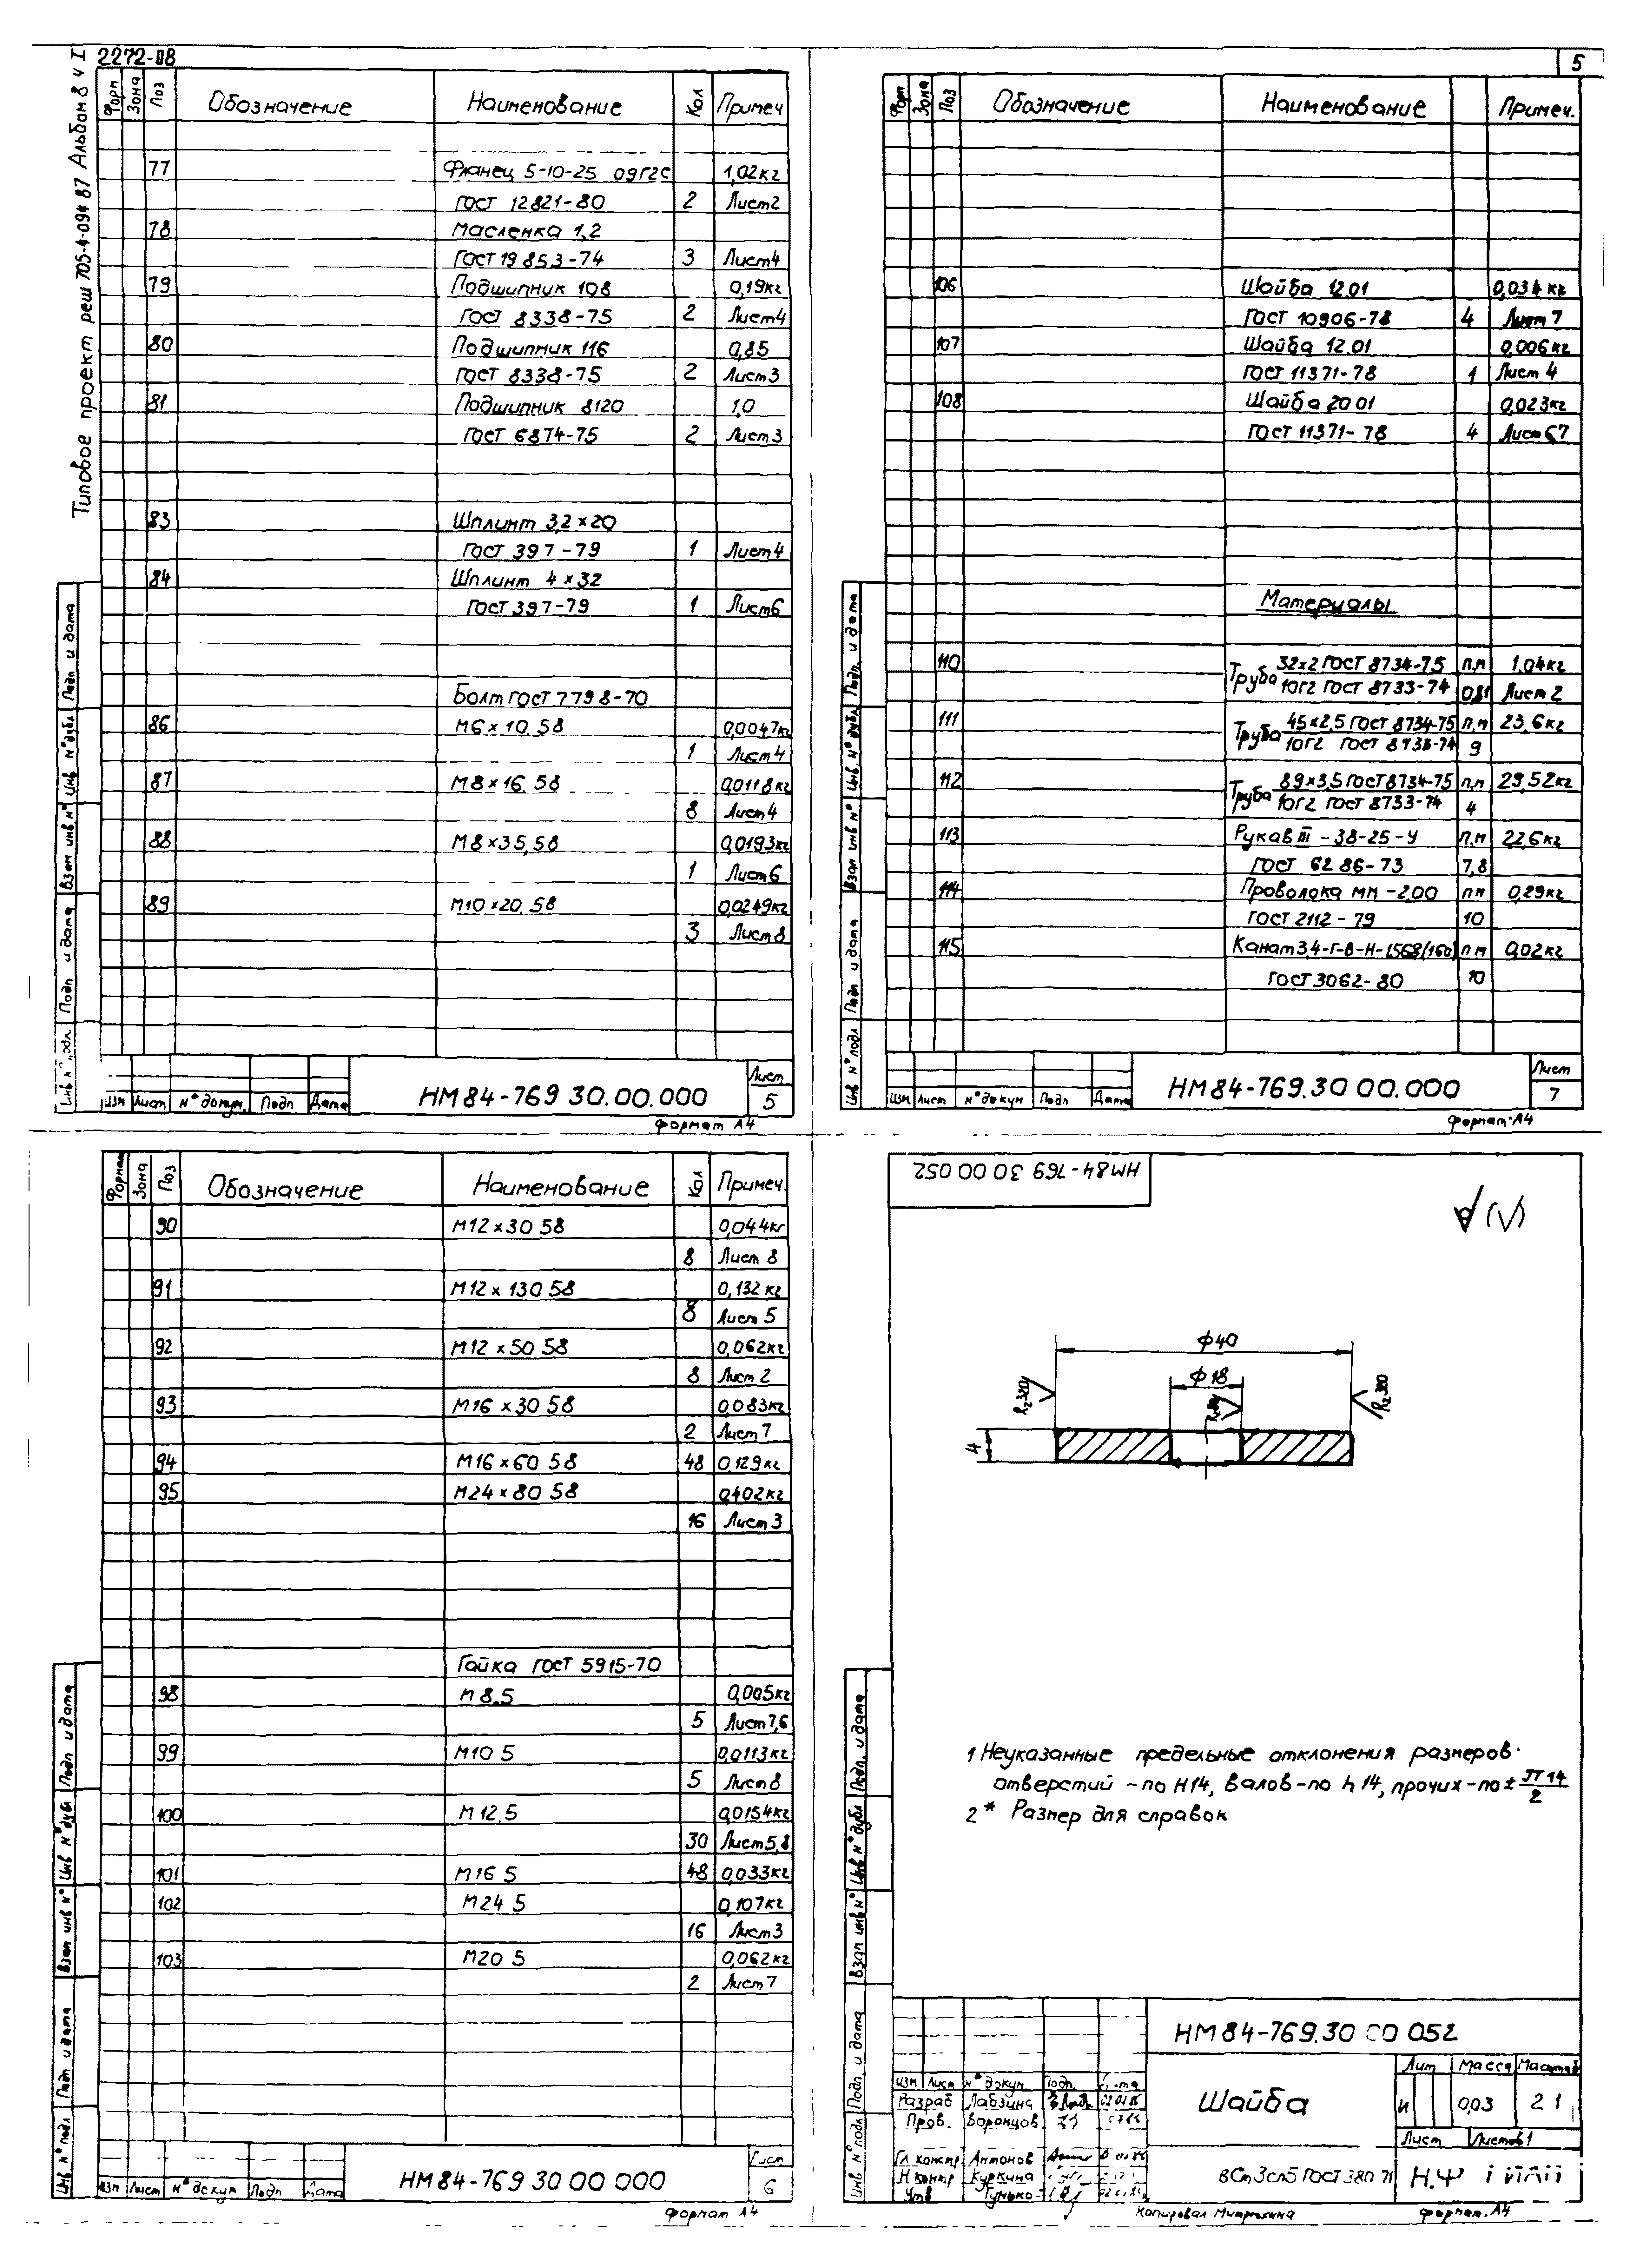 Типовое проект реш 705-4-094 87 Альбом 8 ч I
2272-08
Форм Зона Поз Обозначение Наименование Кол Примеч
77 Фланец 5-10-25 09Г2С 1,02кг
ГОСТ 12821-80 2 Лист2
78 Масленка 1,2
ГОСТ 19853-74 3 Лист4
79 Подшипник 108 0,19кг
ГОСТ 8338-75 2 Лист4
80 Подшипник 116 0,85
ГОСТ 8338-75 2 Лист3
81 Подшипник 8120 1,0
ГОСТ 6874-75 2 Лист3
83 Шплинт 3,2×20
ГОСТ 397-79 1 Лист4
84 Шплинт 4×32
ГОСТ 397-79 1 Лист6
Болт ГОСТ 7798-70
86 М6×10.58 0,0047кг
1 Лист4
87 М8×16.58 0,0118кг
8 Лист4
88 М8×35,58 0,0193кг
1 Лист6
89 М10×20,58 0,0249кг
3 Лист8
Подп и дата
Инв N°дубл
Взам инв N°
Подп и дата
Инв N° подл.
Изм Лист N° докум. Подп Дата
НМ84-769 30.00.000
Лист
5
формат А4
5
Форм Зона Поз Обозначение Наименование Примеч.
106 Шайба 12.01 0,034кг
ГОСТ 10906-78 4 Лист 7
107 Шайба 12.01 0,006кг
ГОСТ 11371-78 1 Лист 4
108 Шайба 20 01 0,023кг
ГОСТ 11371-78 4 Лист 6,7
Материалы
110 Труба 32×2 ГОСТ 8734-75 п,м 1,04кг
10Г2 ГОСТ 8733-74 0,81 Лист 2
111 Труба 45×2,5 ГОСТ 8734-75 п,м 23,6кг
10Г2 ГОСТ 8733-74 9
112 Труба 89×3,5 ГОСТ 8734-75 п,м 29,52кг
10Г2 ГОСТ 8733-74 4
113 Рукав III-38-25-У п,м 22,6кг
ГОСТ 6286-73 7,8
114 Проволока ММ-2.00 пм 0,29кг
ГОСТ 2112-79 10
115 Канат 3,4-Г-В-Н-1568(160) п м 0,02кг
ГОСТ 3062-80 10
Подп. и дата
Инв. N° дубл
Взам инв N°
Подп и дата
Инв N° подл
Изм Лист N° докум Подп Дата
НМ84-769.30 00.000
Лист
7
формат А4
Формат Зона Поз Обозначение Наименование Кол Примеч.
90 М12×30 58 0,044кг
8 Лист 8
91 М12×130 58 0,132кг
8 Лист 5
92 М12×50 58 0,062кг
8 Лист 2
93 М16×30 58 0,083кг
2 Лист 7
94 М16×60 58 48 0,129кг
95 М24×80 58 0,402кг
16 Лист 3
Гайка ГОСТ 5915-70
98 М8.5 0,005кг
5 Лист 7,6
99 М10 5 0,0113кг
5 Лист 8
100 М12,5 0,0154кг
30 Лист 5,8
101 М16 5 48 0,033кг
102 М24 5 0,107кг
16 Лист3
103 М20 5 0,062кг
2 Лист 7
Подп и дата
Инв N° дубл
Взам инв N°
Подп и дата
Инв N° подл
Изм Лист N° докум Подп Дата
НМ84-769 30 00 000
Лист
6
формат А4
НМ84-769 30 00 052
ф40
ф18
Rz320
Rz 320
4
1 Неуказанные предельные отклонения размеров:
отверстий - по Н14, валов - по h14, прочих - по ± IT14/2
2 * Размер для справок
Подп. и дата
Инв N° дубл
Взам инв N°
Подп и дата
Инв N° подл
НМ84-769.30 00 052
Шайба
Лит Масса Масштаб
И 0,03 2 1
Лист Листов 1
Изм Лист N° докум. Подп. Дата
Разраб Лабзина
Пров. Воронцов
Гл констр Антонов
Н контр Куркина
Утв Гунько
ВСт3сп5 ГОСТ 380 71
Н.Ф
Копировал Митрохина
формат. А4